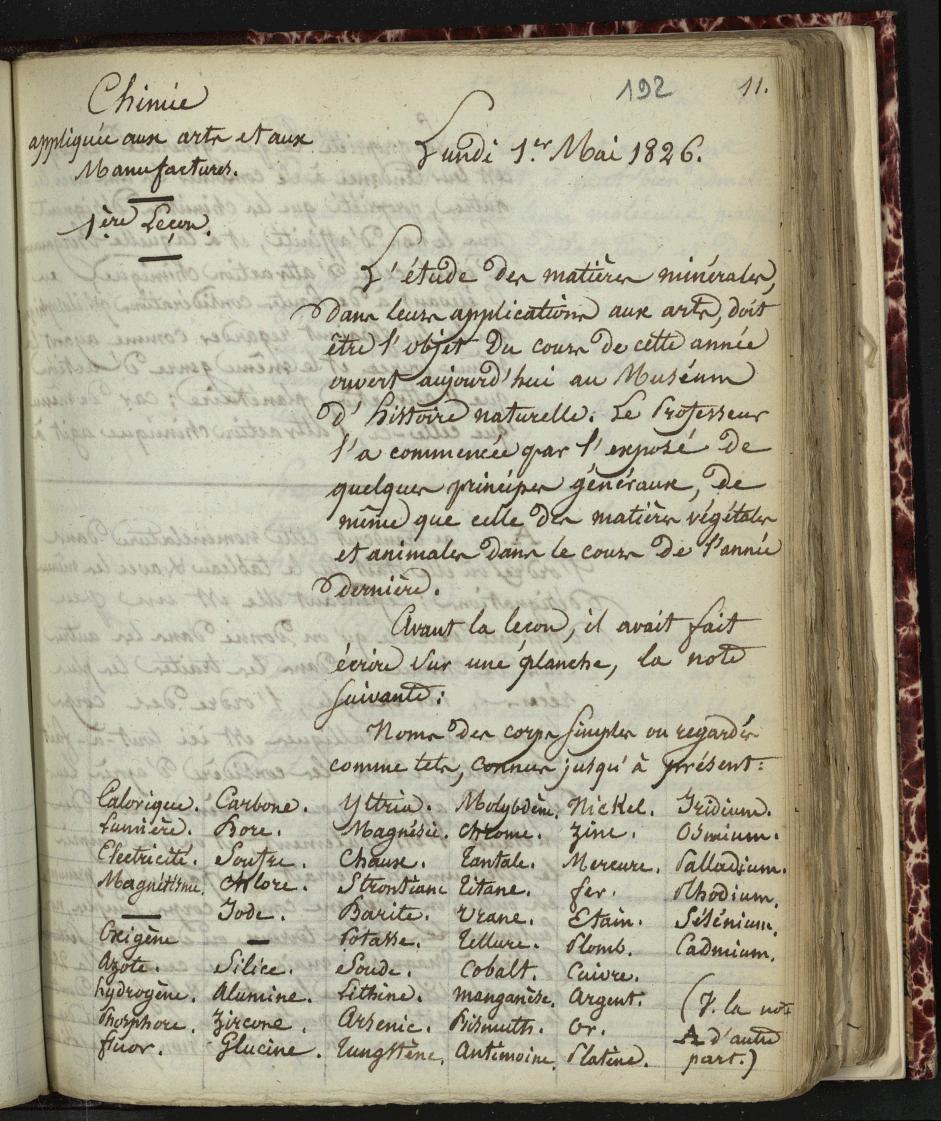 192
11.
Chimie
appliquée aux arts et aux
Manufactures.
1ère Leçon.
Lundi 1.er Mai 1826.
L'étude des matières minérales,
dans leurs applications aux arts, doit
être l'objet du cours de cette année
ouvert aujourd'hui au Muséum
d'histoire naturelle. Le Professeur
l'a commencée par l'exposé de
quelques principes généraux, de
même que celle des matières végétales
et animales dans le cours de l'année
dernière.
Avant la leçon, il avait fait
écrire sur une planche, la note
suivante:
Noms des corps simples ou regardés
comme tels, connus jusqu'à présent:
Calorique. Carbone. Yttria. Molybdène. Nickel. Iridium.
Lumière. Bore. Magnésie. Chrome. Zinc. Osmium.
Electricité. Soufre. Chaux. Tantale. Mercure. Palladium.
Magnétisme. Chlore. Strontiane Titane. fer. Rhodium.
Iode. Barite. Urane. Etain. Sélénium.
Oxigène Potasse. Tellure. Plomb. Cadmium.
Azote. Silice. Soude. Cobalt. Cuivre.
hydrogène. Alumine. Lithine. Manganèse. Argent. (V. la note
Phosphore. Zircone. Arsenic. Bismuth. Or. A d'autre
fluor. Glucine. Tungstène. Antimoine. Platine. part.)